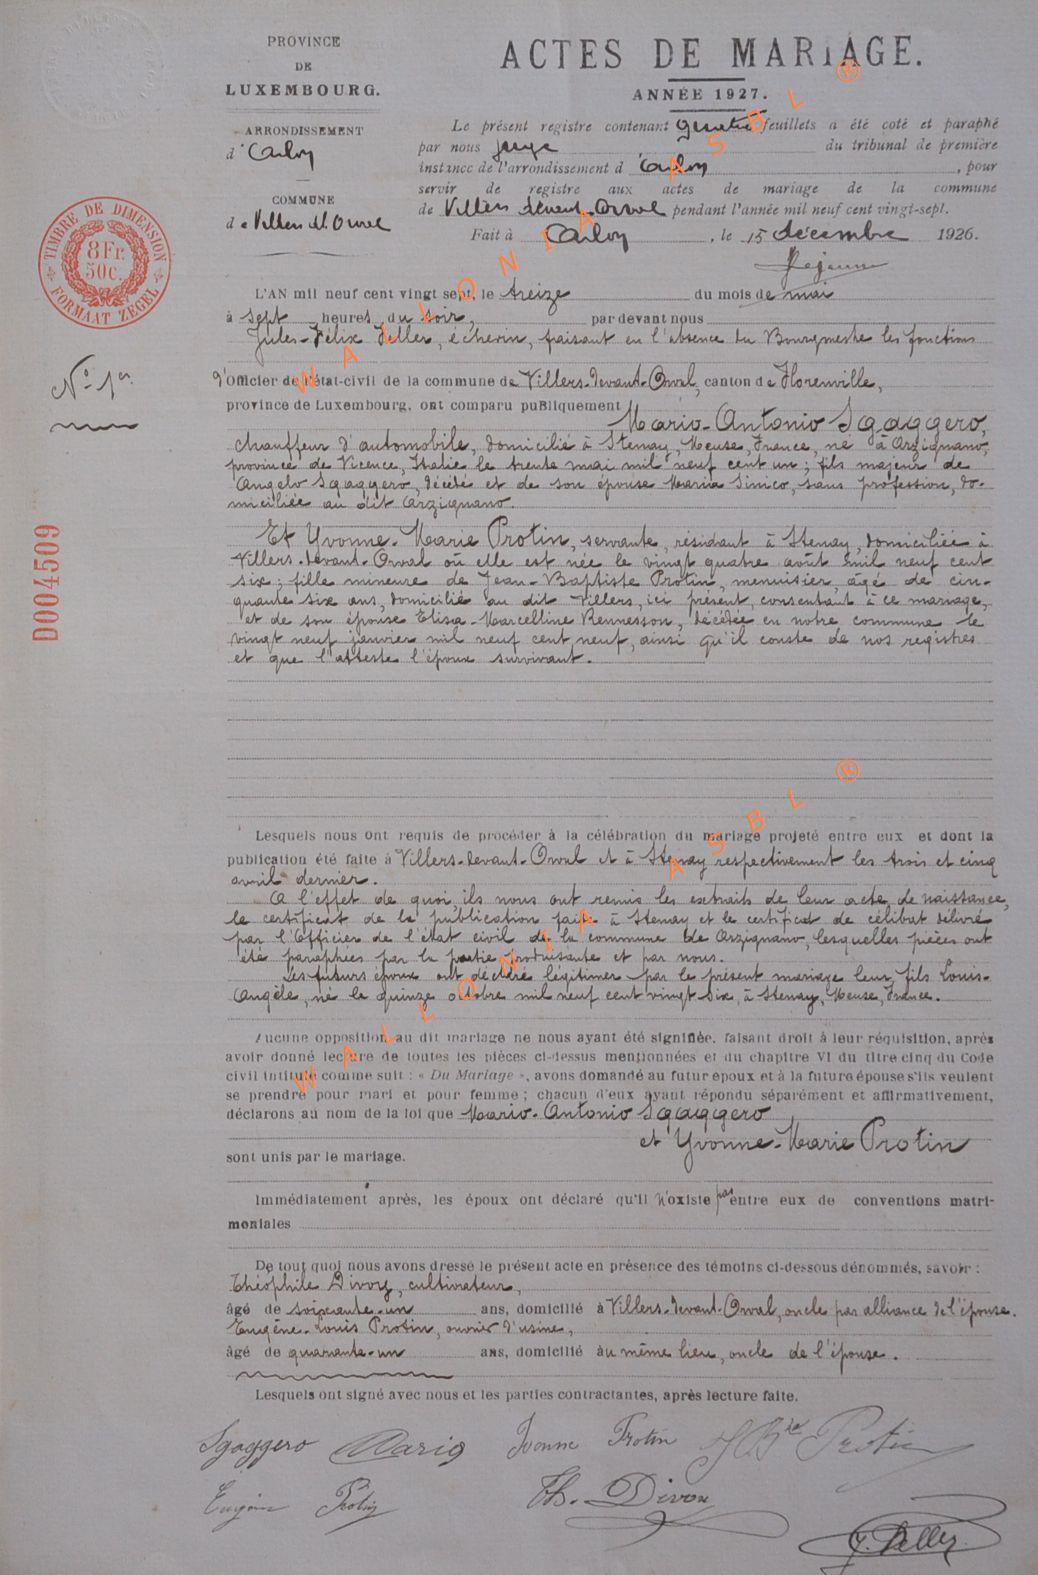 PROVINCE
DE
LUXEMBOURG.
ARRONDISSEMENT
d'Arlon
COMMUNE
de Villers d. Orval
ACTES DE MARIAGE.
ANNÉE 1927.
Le présent registre contenant quatre feuillets a été coté et paraphé
par nous juge du tribunal de première
instance de l'arrondissement d'Arlon, pour
servir de registre aux actes de mariage de la commune
de Villers devant-Orval pendant l'année mil neuf cent vingt-sept.
Fait à Arlon, le 15 décembre 1926.
TIMBRE DE DIMENSION
8 Fr.
50c.
FORMAAT ZEGEL
D004509
N° 1er
L'AN mil neuf cent vingt sept, le treize du mois de mai
à sept heures du soir, par devant nous
Jules-Félix Feller, échevin, faisant en l'absence du Bourgmestre les fonctions
d'Officier de l'état-civil de la commune de Villers-devant-Orval, canton de Florenville,
province de Luxembourg, ont comparu puBliquement Mario-Antonio Sgaggero,
chauffeur d'automobile, domicilié à Stenay, Meuse, France, né à Arzignano,
province de Vicence, Italie le trente mai mil neuf cent un; fils majeur de
Angelo Sgaggero, décédé et de son épouse Maria Sinico, sans profession, do-
miciliée au dit Arzignano.
Et Yvonne-Marie Protin, servante, résidant à Stenay, domiciliée à
Villers-devant-Orval où elle est née le vingt quatre août mil neuf cent
six; fille mineure de Jean-Baptiste Protin, menuisier, âgé de cin-
quante six ans, domicilié au dit Villers, ici présent, consentant à ce mariage,
et de son épouse Elisa-Marcelline Rennesson, décédée en notre commune le
vingt neuf janvier mil neuf cent neuf, ainsi qu'il conste de nos registres
et que l'atteste l'époux survivant.
Lesquels nous ont requis de procéder à la célébration du mariage projeté entre eux et dont la
publication été faite à Villers-devant-Orval et à Stenay respectivement les trois et cinq
avril dernier.
A l'effet de quoi, ils nous ont remis les extraits de leur acte de naissance,
le certificat de la publication faite à Stenay et le certificat de célibat délivré
par l'Officier de l'état civil de la commune de Arzignano, lesquelles pièces ont
été paraphées par la partie produisante et par nous.
Les futurs époux ont déclaré légitimer par le présent mariage leur fils Louis-
Angèle, né le quinze octobre mil neuf cent vingt six, à Stenay, Meuse, France.
Aucune opposition au dit mariage ne nous ayant été signifiée, faisant droit à leur réquisition, après
avoir donné lecture de toutes les pièces ci-dessus mentionnées et du chapitre VI du titre cinq du Code
civil intitulé comme suit : « Du Mariage », avons demandé au futur époux et à la future épouse s'ils veulent
se prendre pour mari et pour femme ; chacun d'eux ayant répondu séparément et affirmativement,
déclarons au nom de la loi que Mario-Antonio Sgaggero
et Yvonne-Marie Protin
sont unis par le mariage.
Immédiatement après, les époux ont déclaré qu'il n'existe pas entre eux de conventions matri-
moniales
De tout quoi nous avons dressé le présent acte en présence des témoins ci-dessous dénommés, savoir :
Théophile Divoy, cultivateur,
âgé de soixante-un ans, domicilié à Villers-devant-Orval, oncle par alliance de l'épouse.
Eugène-Louis Protin, ouvrier d'usine,
âgé de quarante-un ans, domicilié au même lieu, oncle de l'épouse.
Lesquels ont signé avec nous et les parties contractantes, après lecture faite.
Sgaggero Mario Ivonne Protin J Bte Protin
Eugène Protin Th. Divoy
J. Feller
WALLONIA ASBL ®
WALLONIA ASBL ®